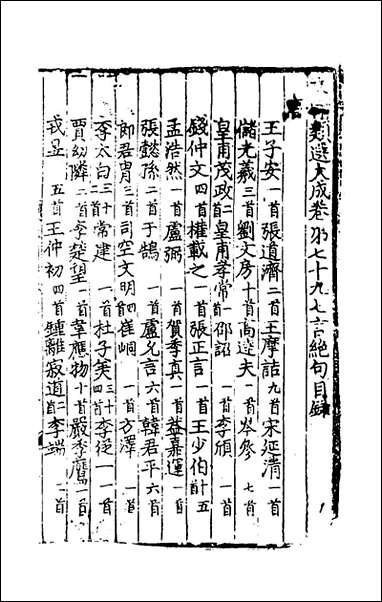 類選大成卷之七十九七言絕句目錄
唐
王子安 一首 張道濟 二首 王摩詰 九首 宋延清 一首
儲光羲 三首 劉文房 十首 高達夫 一首 岑參 七首
皇甫茂政 二首 皇甫孝常 一首 邵說 一首 李頎 一首
錢仲文 四首 權載之 一首 張正言 一首 王少伯 卅五
孟浩然 一首 盧弼 一首 賀季真 一首 蓋嘉運 一首
張懿孫 二首 于鵠 一首 盧允言 六首 韓君平 六首
郎君冑 三首 司空文明 四首 崔峒 一首 方澤 一首
李太白 三十首 常建 一首 杜子美 三十四首 李從一 一首
賈幼隣 二首 李楚望 一首 韋應物 十首 嚴季鷹 一首
戎昱 五首 王仲初 四首 鍾離寂道 二首 李端 一首